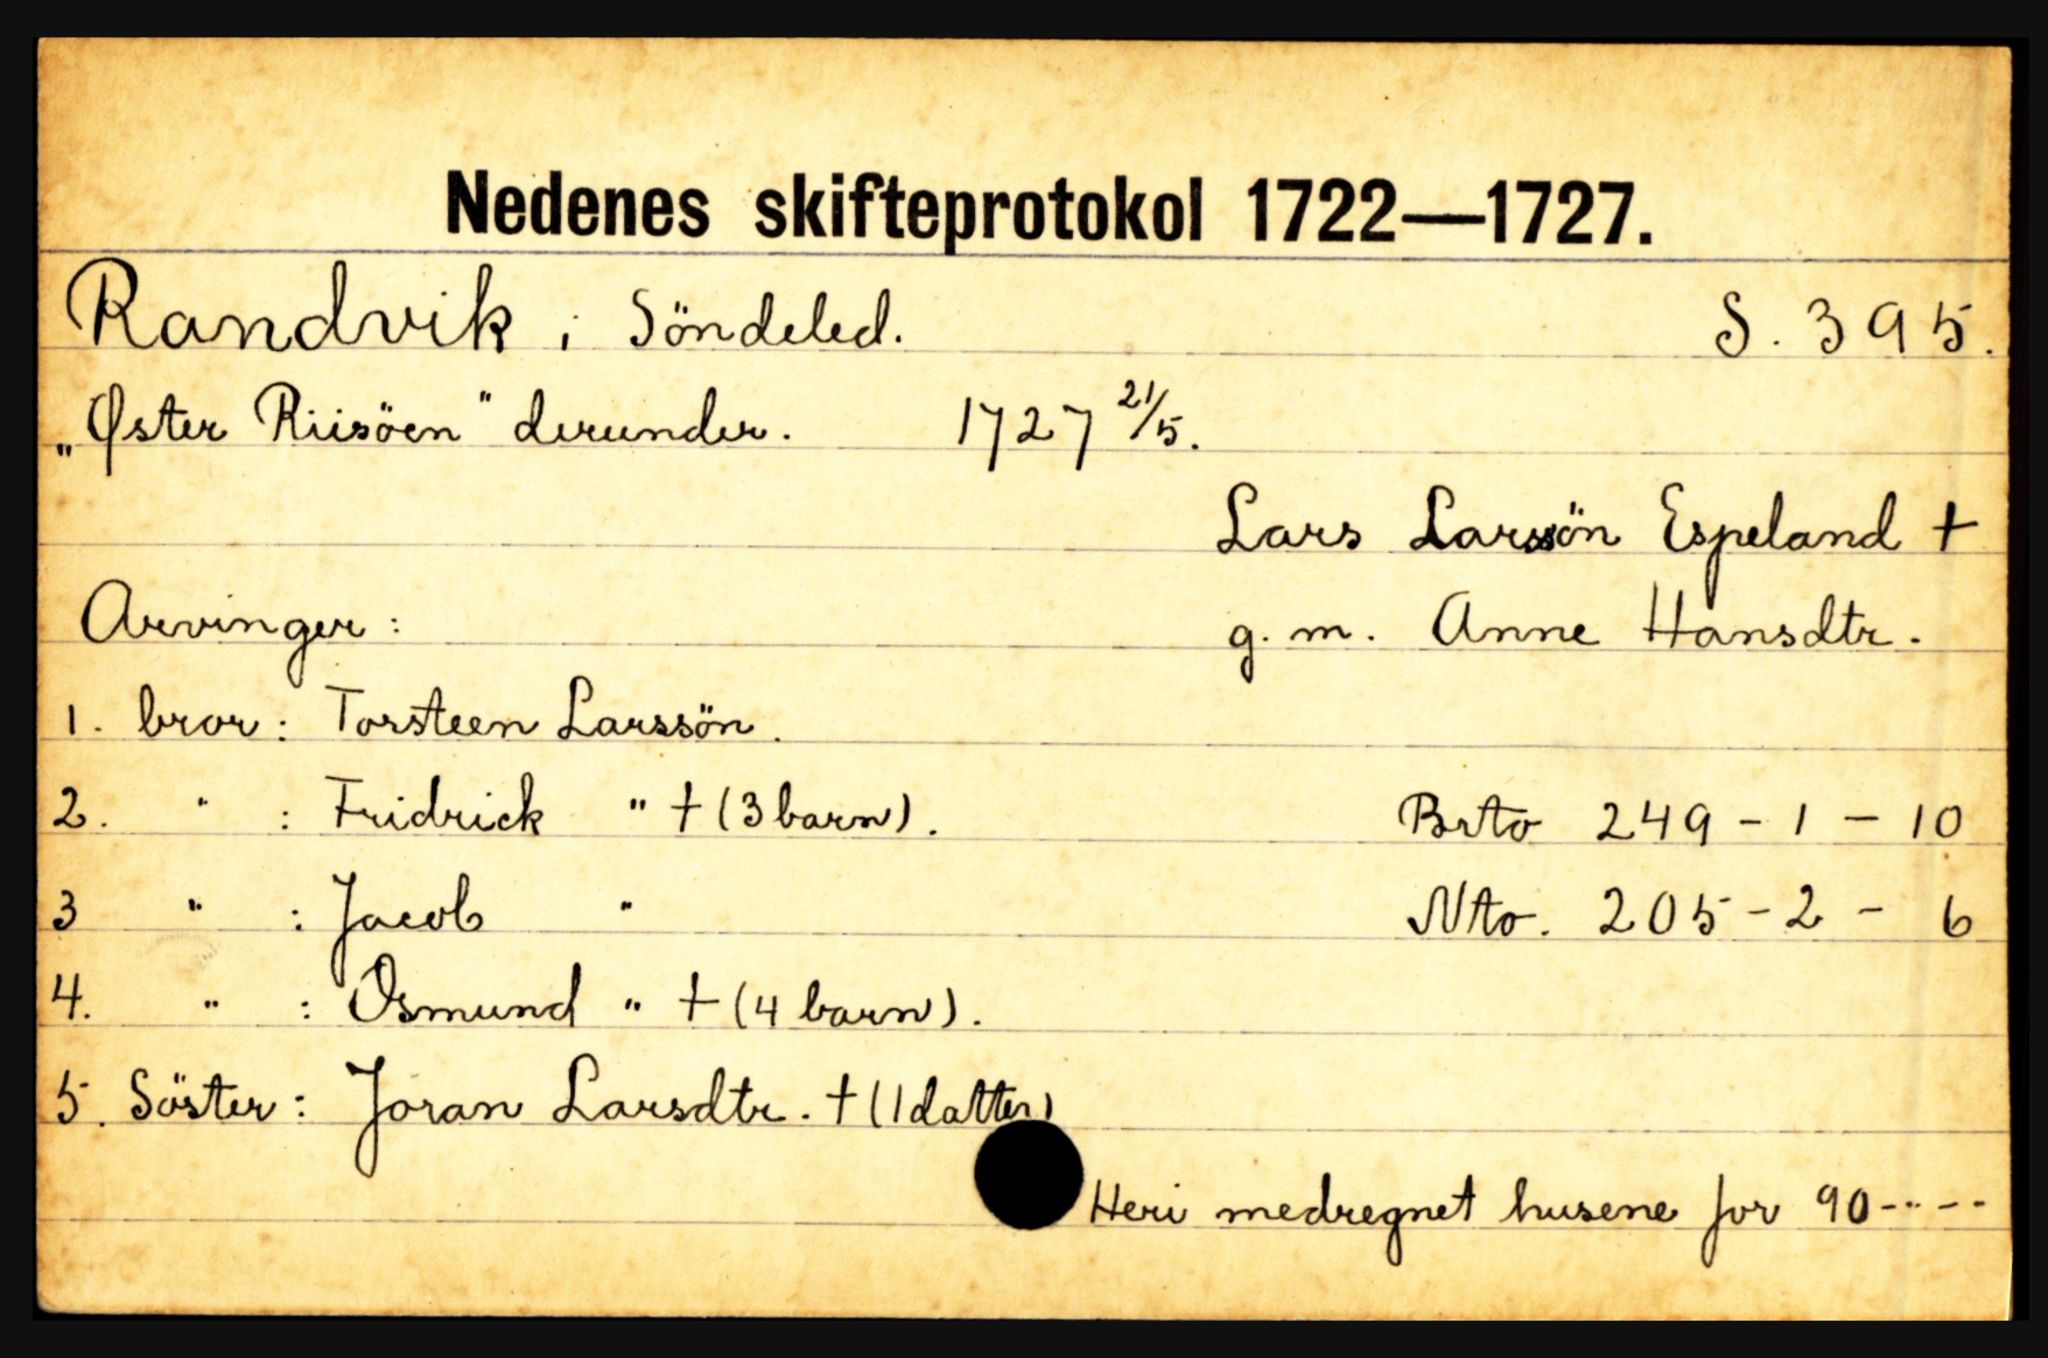 Nedenes skifteprotokol 1722—1727.
Randvik i Söndeled. S. 395.
„Øster Riisöen" derunder. 1727 21/5.
Lars Larssön Espeland †
Arvinger: g. m. Anne Hansdtr.
1. bror: Torsteen Larssön.
2. " : Fridrick " † (3 barn). Brto 249 - 1 - 10
3 " : Jacob " Nto. 205 - 2 - 6
4. " : Osmund " † (4 barn).
5. Söster: Joran Larsdtr. † (1 datter)
Heri medregnet husene for 90 - - - -